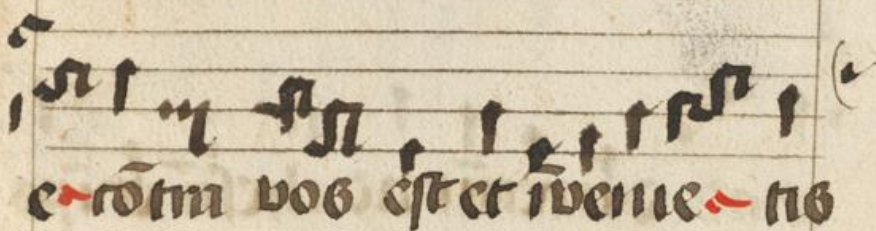 e cōtra vos est et īvenie tis